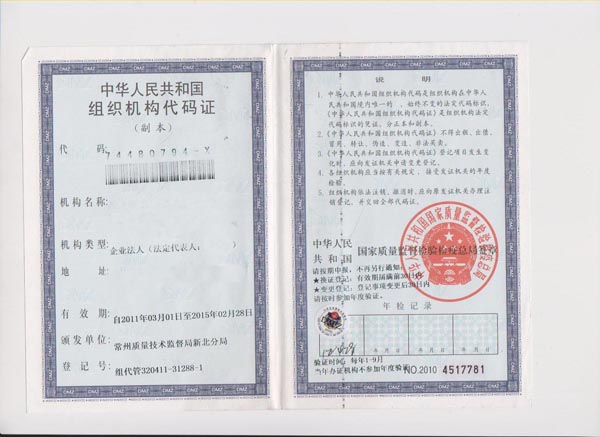 中华人民共和国
组织机构代码证
（副本）
代 码: 74480794-X
机构名称:
机构类型: 企业法人（法定代表人:        ）
地 址:
有 效 期: 自2011年03月01日至2015年02月28日
颁发单位: 常州质量技术监督局新北分局
登 记 号: 组代管320411-31288-1
说 明
1. 中华人民共和国组织机构代码是组织机构在中华人
民共和国境内唯一的、始终不变的法定代码标识,
《中华人民共和国组织机构代码证》是组织机构法定
代码标识的凭证。分正本和副本。
2.《中华人民共和国组织机构代码证》不得出租、出借、
冒用、转让、伪造、变造、非法买卖。
3.《中华人民共和国组织机构代码证》登记项目发生变
化时, 应向发证机关申请变更登记。
4. 各组织机构应当按有关规定, 接受发证机关的年度
检验。
5. 组织机构依法注销、撤消时, 应向原发证机关办理注
销登记, 并交回全部代码证。
中华人民
共 和 国 国家质量监督检验检疫总局签章
中华人民共和国国家质量监督检验检疫总局
请按期申报, 不再另行通知:
★换证登记: 有效期届满前30日内
★变更登记: 登记事项变更后30日内
请按时参加年度验证。
年 检 记 录
年 月 日 年 月 日 年 月 日
验证时间: 每年1-9月
当年办证机构不参加年度验证
NO.2010 4517781